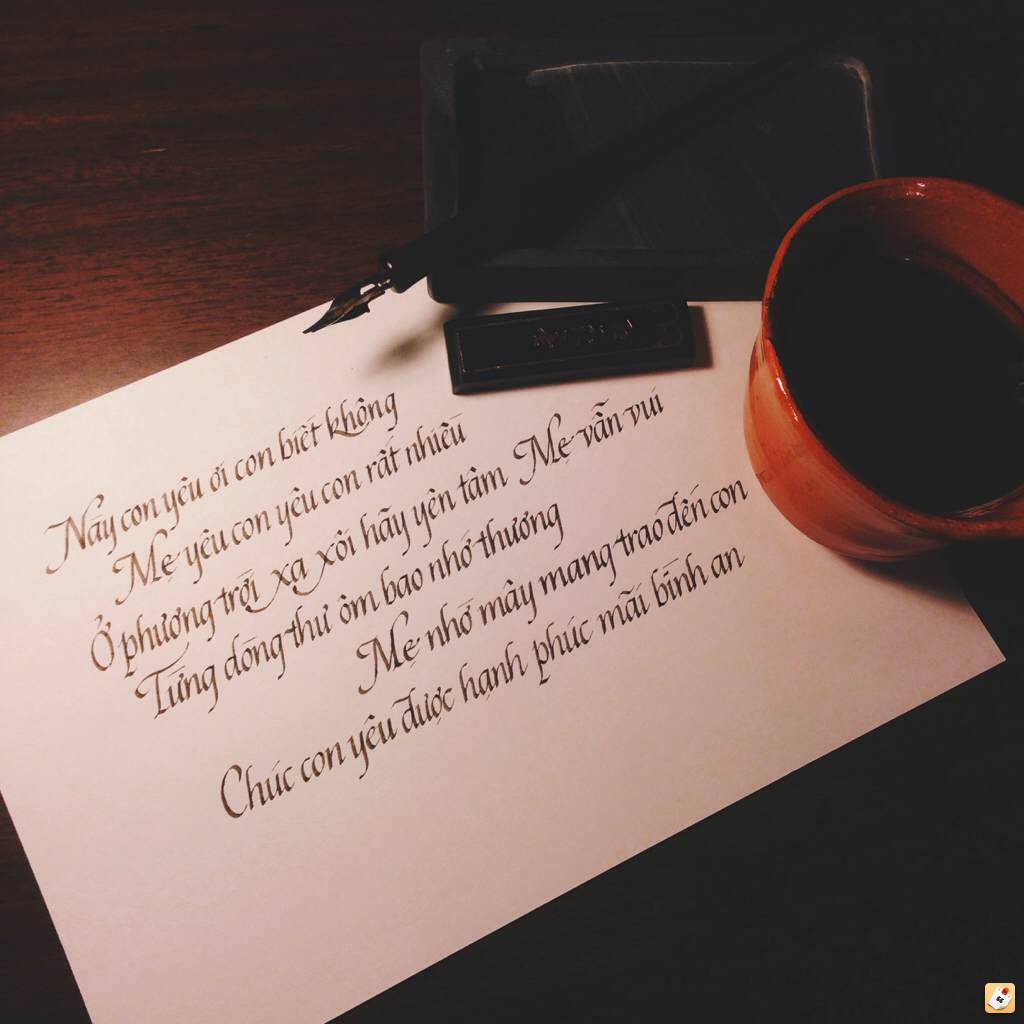 Này con yêu ơi con biết không
Mẹ yêu con yêu con rất nhiều
Ở phương trời xa xôi hãy yên tâm Mẹ vẫn vui
Từng dòng thư ôm bao nhớ thương
Mẹ nhờ mây mang trao đến con
Chúc con yêu được hạnh phúc mãi bình an